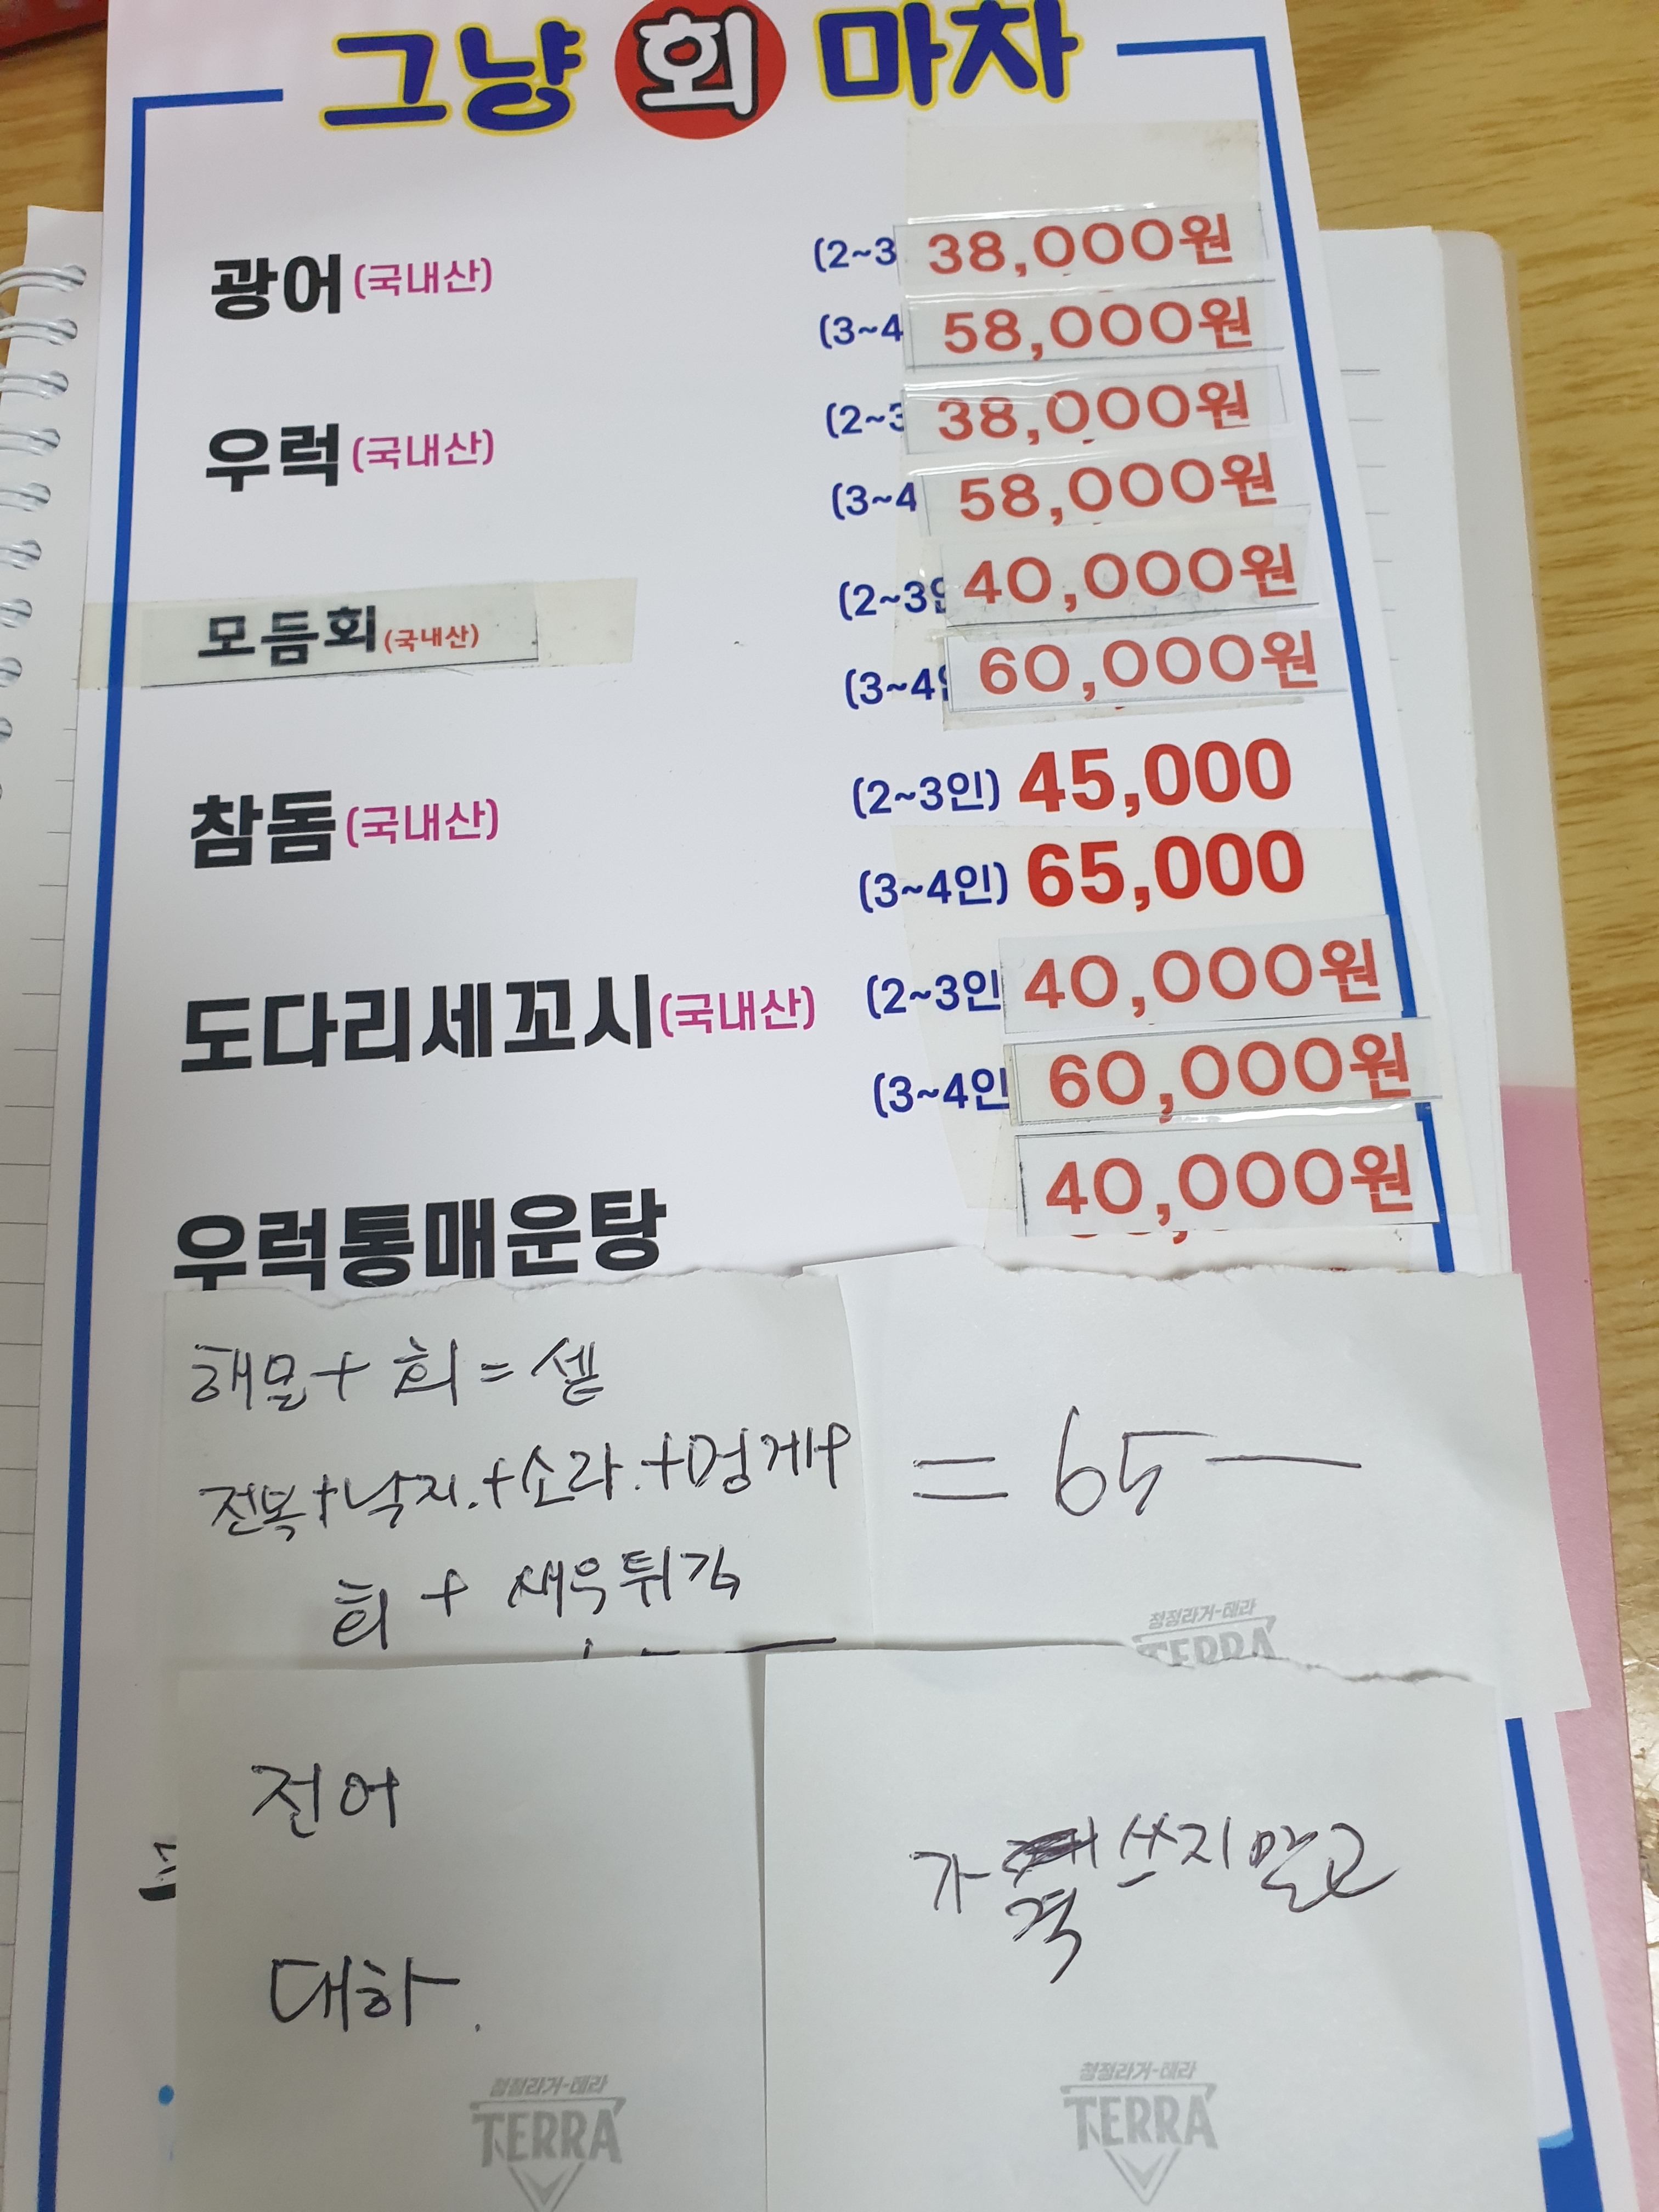 그냥 회 마차
광어(국내산) (2~3 38,000원
(3~4 58,000원
우럭(국내산) (2~3 38,000원
(3~4 58,000원
모듬회(국내산) (2~3인 40,000원
(3~4인 60,000원
참돔(국내산) (2~3인) 45,000
(3~4인) 65,000
도다리세꼬시(국내산) (2~3인 40,000원
(3~4인 60,000원
우럭통매운탕 40,000원
해물+회=셋
전복+낙지.+소라.+멍게+ = 65—
회+새우튀김
청정라거-테라
TERRA
전어
가격 쓰지말고
대하.
청정라거-테라
TERRA
청정라거-테라
TERRA